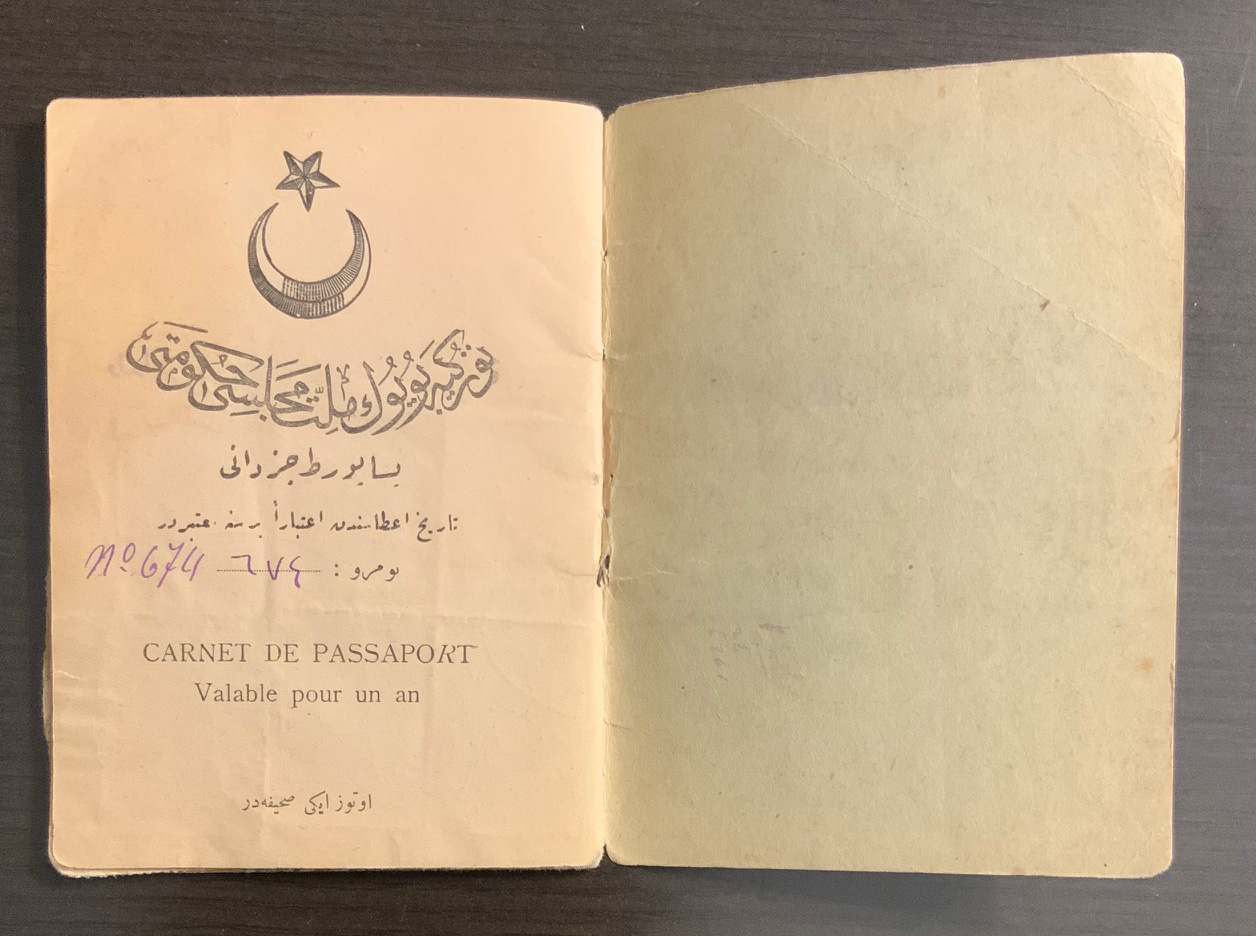 توركيه بويوك ملّت مجلسى حكومتى
پساپورط جزدانى
تاريخ اعطاسندن اعتباراً بر سنه معتبردر
نومرو : ٦٧٤ Nº 674
CARNET DE PASSAPORT
Valable pour un an
اوتوز ايكى صحيفه‌در